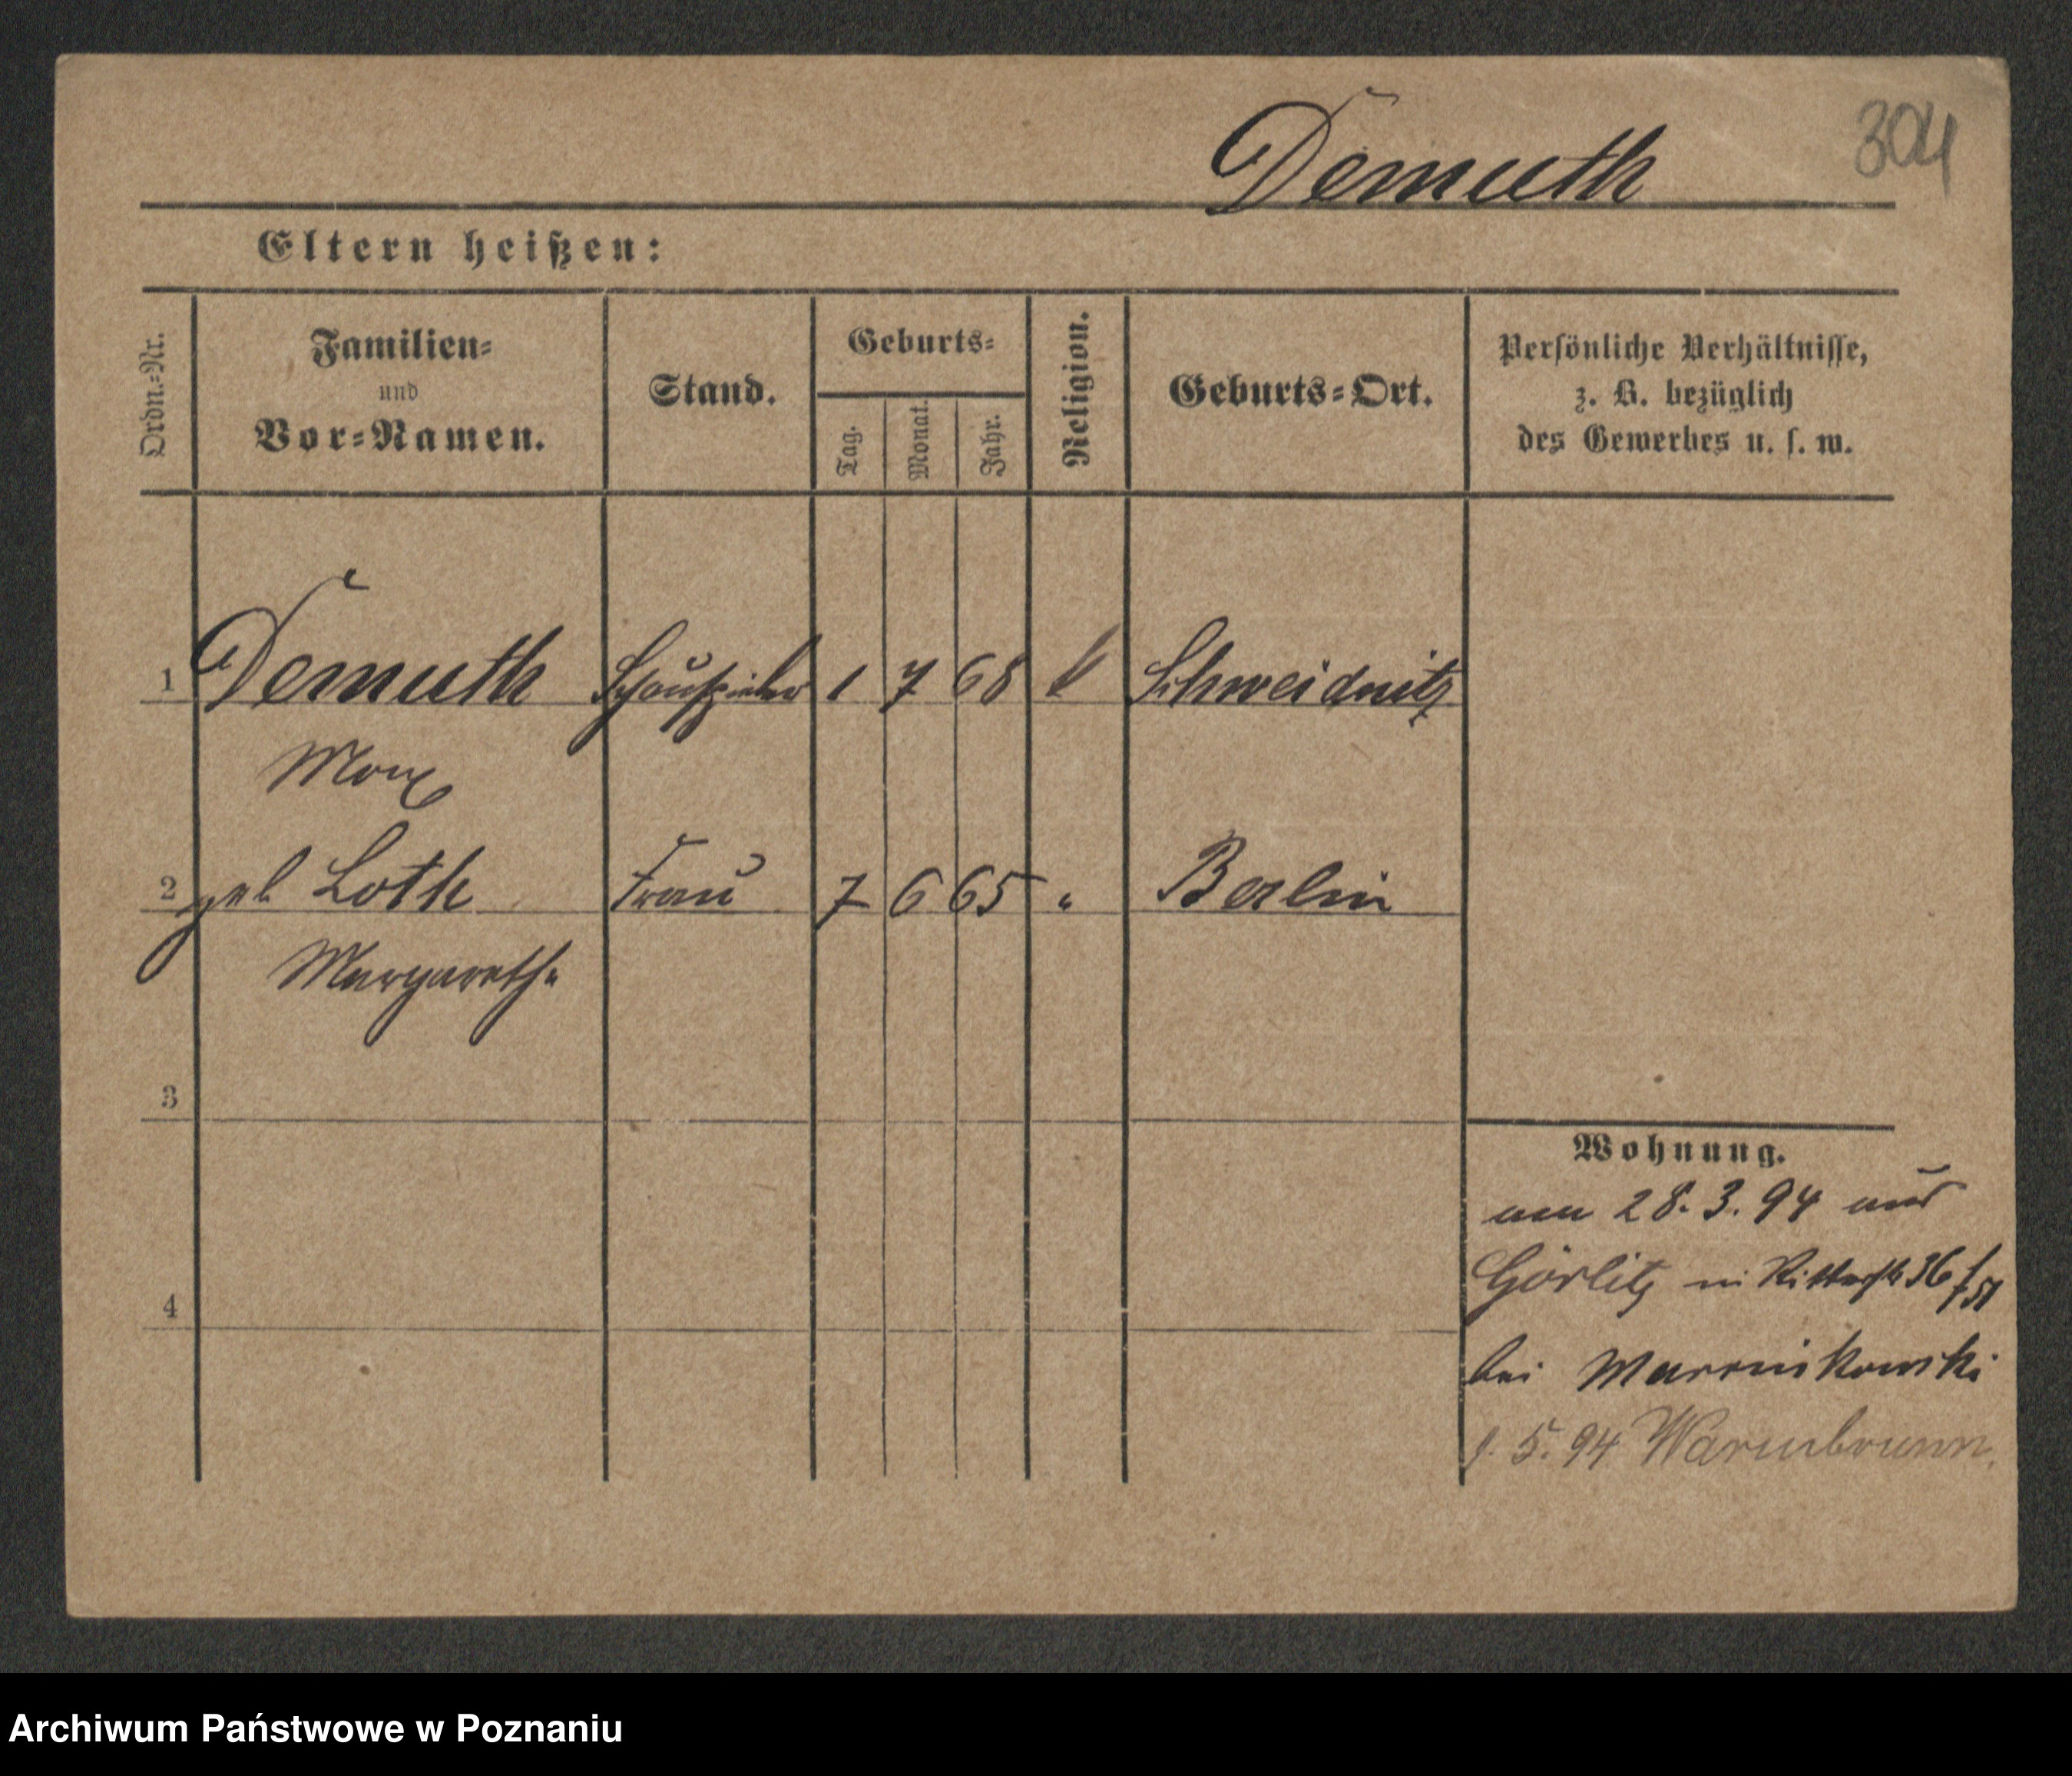 Demuth
304
Eltern heißen:
Ordn.=Nr.
Familien=
und
Vor=Namen.
Stand.
Geburts=
Tag.
Monat.
Jahr.
Religion.
Geburts=Ort.
Persönliche Verhältnisse,
z. B. bezüglich
des Gewerbes u. s. w.
1 Demuth Schauspieler 1 7 68 k Schweidnitz
Max
2 geb Loth Frau 7 6 65 " Berlin
Margarethe
3
4
Wohnung.
am 28. 3. 94 aus
Görlitz in Ritterstr 36
bei
5. 94 Warmbrunn.
Archiwum Państwowe w Poznaniu